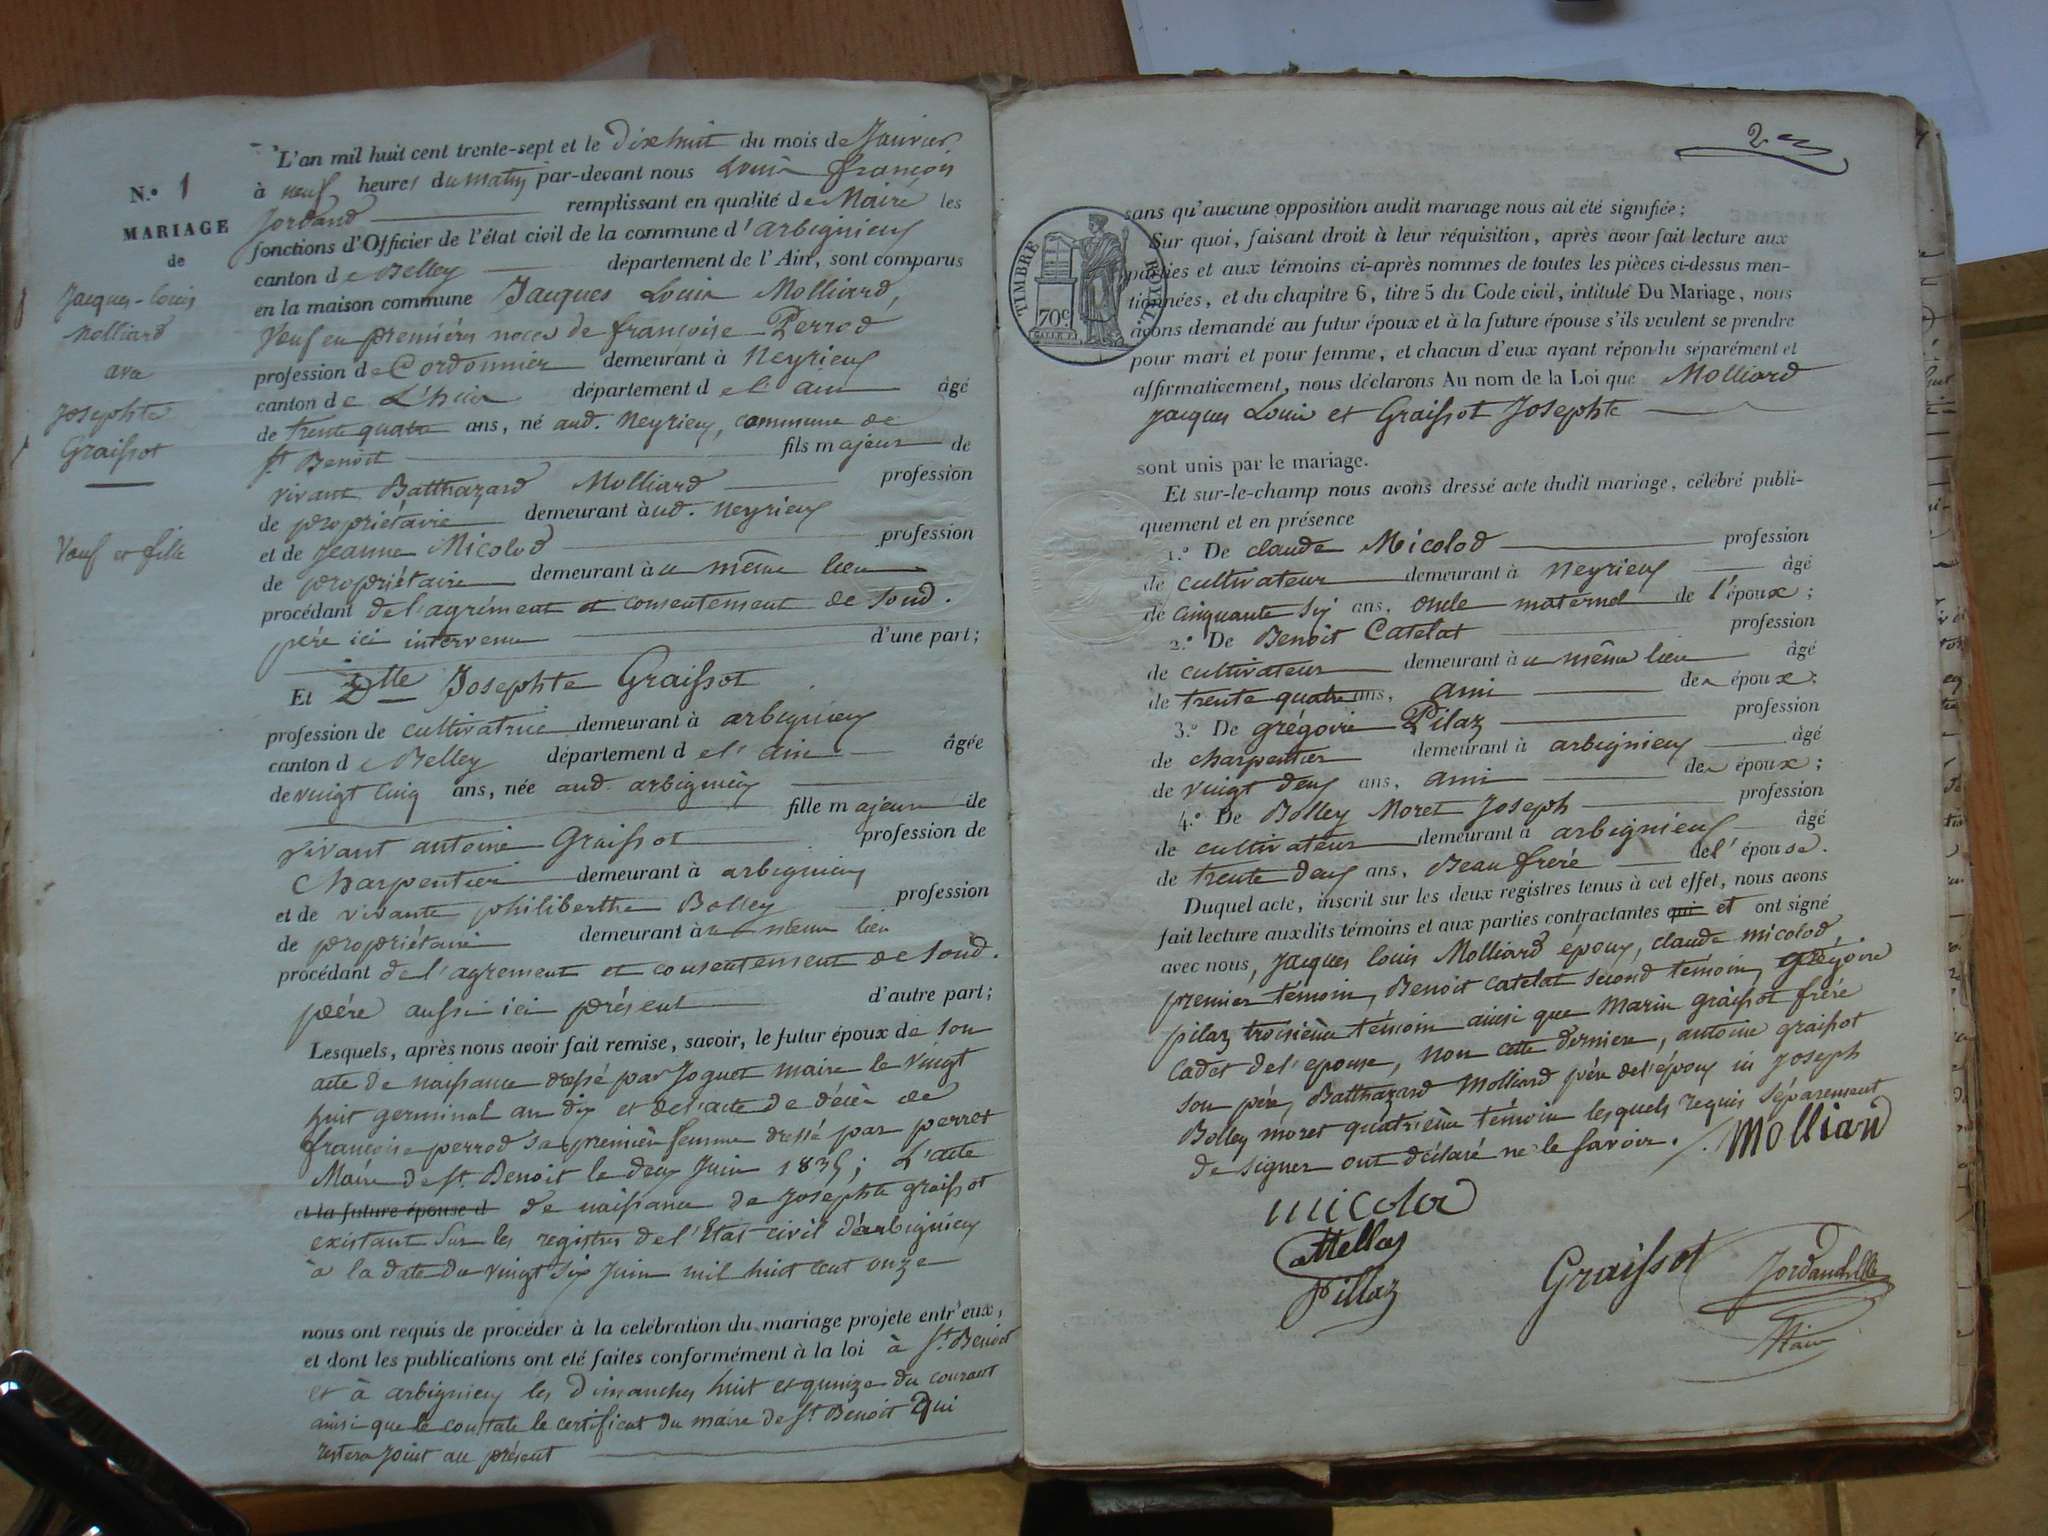 N.º 1
MARIAGE
de
Jacques-Louis
Molliard
avec
Josephte
Graissot
Veuf et fille
L'an mil huit cent trente-sept et le Dix huit du mois de Janvier
à neuf heures du matin par-devant nous Louis françois
Jordand remplissant en qualité de Maire les
fonctions d'Officier de l'état civil de la commune d'arbignieu
canton de Belley département de l'Ain, sont comparus
en la maison commune Jacques Louis Molliard,
Veuf en premières noces de françoise Perrod
profession de Cordonnier demeurant à Neyrieu
canton de L'huis département de l'ain âgé
de trente quatre ans, né aud. Neyrieu, commune de
St Benoit fils majeur de
vivant Balthazard Molliard profession
de propriétaire demeurant à ud. Neyrieu
et de Jeanne Micolod profession
de propriétaire demeurant à u même lieu
procédant de l'agrément et consentement de sond.
père ici intervenu d'une part;
Et Dlle Josephte Graissot
profession de cultivatrice demeurant à arbignieu
canton de Belley département de l'ain âgée
de vingt cinq ans, née aud. arbignieu
fille majeure de
vivant antoine Graissot profession de
Charpentier demeurant à arbignieu
et de vivante philiberthe Bolley profession
de propriétaire demeurant à u même lieu
procédant de l'agrement et consentement de sond.
père aussi ici présent d'autre part;
Lesquels, après nous avoir fait remise, savoir, le futur époux de son
acte de naissance dressé par Joguet maire le vingt
huit germinal an dix et de l'acte de décès de
françoise perrod sa première femme dressé par perret
Maire de St. Benoit le deux Juin 1835; L'acte
et la future épouse d de naissance de Josephte graissot
existant sur les registres de l'Etat civil d'arbignieu
à la date du vingt six Juin mil huit cent onze
nous ont requis de procéder à la célébration du mariage projeté entr'eux,
et dont les publications ont été faites conformément à la loi à St. Benoit
et à arbignieu les Dimanches huit et quinze du courant
ainsi que le constate le certificat du maire de St. Benoit Qui
restera joint au présent
2
TIMBRE ROYAL
70c
sans qu'aucune opposition audit mariage nous ait été signifiée;
Sur quoi, faisant droit à leur réquisition, après avoir fait lecture aux
parties et aux témoins ci-après nommes de toutes les pièces ci-dessus men-
tionnées, et du chapitre 6, titre 5 du Code civil, intitulé Du Mariage, nous
avons demandé au futur époux et à la future épouse s'ils veulent se prendre
pour mari et pour femme, et chacun d'eux ayant répondu séparément et
affirmativement, nous déclarons Au nom de la Loi que Molliard
Jacques Louis et Graissot Josephte
sont unis par le mariage.
Et sur-le-champ nous avons dressé acte dudit mariage, célébré publi-
quement et en présence
1.º De claude Micolod profession
de cultivateur demeurant à Neyrieu âgé
de cinquante six ans, oncle maternel de l'époux;
2.º De Benoit Catelat profession
de cultivateur demeurant à u même lieu âgé
de trente quatre ans, ami de époux;
3.º De grégoire Pilaz profession
de charpentier demeurant à arbignieu âgé
de vingt deux ans, ami de époux;
4.º De Bolley Moret Joseph profession
de cultivateur demeurant à arbignieu âgé
de trente deux ans, Beau frère de l'épouse.
Duquel acte, inscrit sur les deux registres tenus à cet effet, nous avons
fait lecture auxdits témoins et aux parties contractantes qui et ont signé
avec nous, Jacques louis Molliard époux, claude micolod,
premier témoin, Benoit catelat second témoin, grégoire
pilaz troisième témoin ainsi que Marin graissot frère
cadet de l'epouse, non cette derniere, antoine graissot
son père, Balthazard Molliard père de l'époux ni Joseph
Bolley moret quatrième témoin lesquels requis séparement
de signer ont déclaré ne le savoir. Molliard
micolod
Cattellas
Pillaz
Graissot
Jordand
Maire